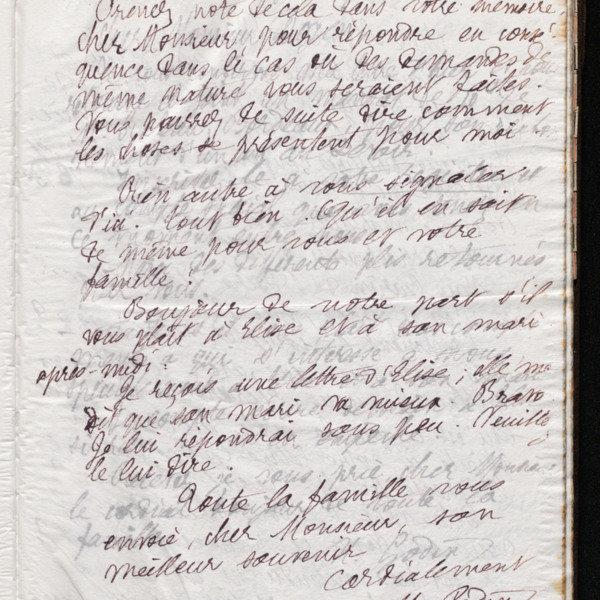 Prenez note de cela dans votre mémoire,
cher Monsieur pour répondre en consé-
quence dans le cas où des demandes de
même nature vous seraient faites.
Vous pourrez de suite dire comment
les choses se présentent pour moi
Rien autre à vous signaler
d'ici. Tout bien. Qu'il en soit
de même pour vous et votre
famille.
Bonjour de notre part s'il
vous plait à Elise et à son mari.
après-midi.
Je reçois une lettre d'Elise ; elle me
dit que son mari va mieux. Bravo
Je lui répondrai sous peu. Veuillez
le lui dire.
Toute la famille vous
envoie, cher Monsieur, son
meilleur souvenir
Cordialement